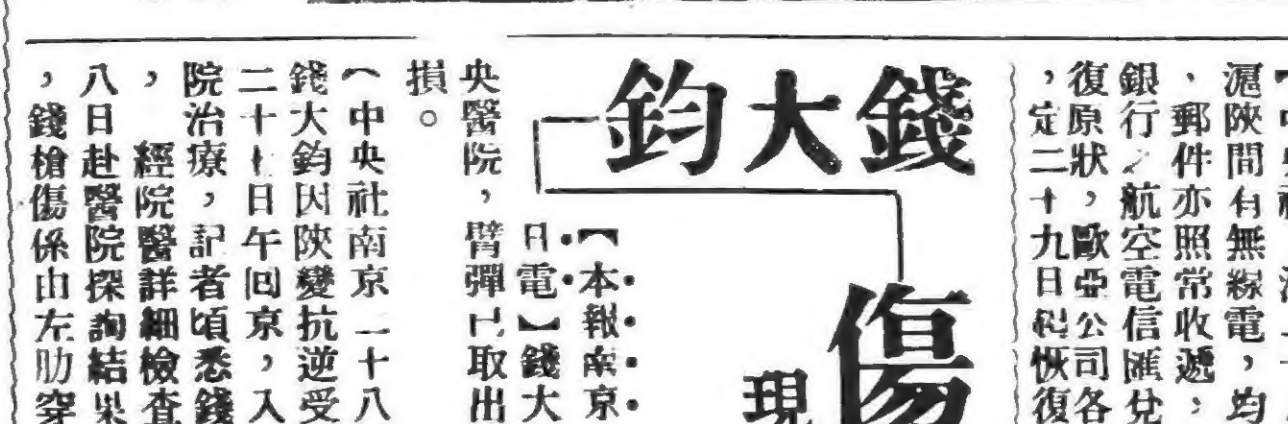 滬陝間有無線電，均
、郵件亦照常收遞，
銀行之航空電信匯兌
復原狀，歐亞公司各
，定二十九日起恢復
錢大鈞
傷
現
【本報南京
日電】錢大
央醫院，臂彈已取出
損。
（中央社南京二十八
錢大鈞因陝變抗逆受
二十七日午回京，入
院治療，記者頃悉錢
，經院醫詳細檢查
八日赴醫院探詢結果
，錢槍傷係由左肋穿